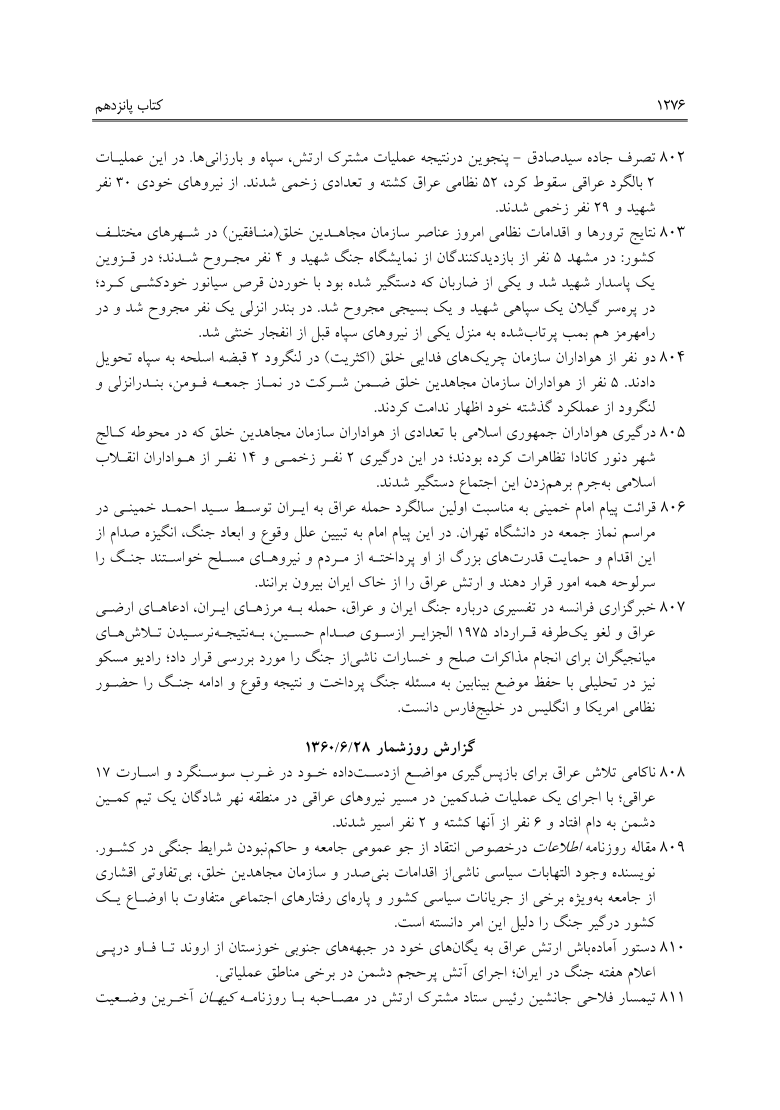 ۱۲۷۶ کتاب پانزدهم
۸۰۲ تصرف جاده سیدصادق – پنجوین درنتیجه عملیات مشترک ارتش، سپاه و بارزانی‌ها. در این عملیـات
۲ بالگرد عراقی سقوط کرد، ۵۲ نظامی عراق کشته و تعدادی زخمی شدند. از نیروهای خودی ۳۰ نفر
شهید و ۲۹ نفر زخمی شدند.
۸۰۳ نتایج ترورها و اقدامات نظامی امروز عناصر سازمان مجاهـدین خلق(منـافقین) در شـهرهای مختلـف
کشور: در مشهد ۵ نفر از بازدیدکنندگان از نمایشگاه جنگ شهید و ۴ نفر مجـروح شـدند؛ در قـزوین
یک پاسدار شهید شد و یکی از ضاربان که دستگیر شده بود با خوردن قرص سیانور خودکشـی کـرد؛
در پره‌سر گیلان یک سپاهی شهید و یک بسیجی مجروح شد. در بندر انزلی یک نفر مجروح شد و در
رامهرمز هم بمب پرتاب‌شده به منزل یکی از نیروهای سپاه قبل از انفجار خنثی شد.
۸۰۴ دو نفر از هواداران سازمان چریک‌های فدایی خلق (اکثریت) در لنگرود ۲ قبضه اسلحه به سپاه تحویل
دادند. ۵ نفر از هواداران سازمان مجاهدین خلق ضـمن شـرکت در نمـاز جمعـه فـومن، بنـدرانزلی و
لنگرود از عملکرد گذشته خود اظهار ندامت کردند.
۸۰۵ درگیری هواداران جمهوری اسلامی با تعدادی از هواداران سازمان مجاهدین خلق که در محوطه کـالج
شهر دنور کانادا تظاهرات کرده بودند؛ در این درگیری ۲ نفـر زخمـی و ۱۴ نفـر از هـواداران انقـلاب
اسلامی به‌جرم برهم‌زدن این اجتماع دستگیر شدند.
۸۰۶ قرائت پیام امام خمینی به مناسبت اولین سالگرد حمله عراق به ایـران توسـط سـید احمـد خمینـی در
مراسم نماز جمعه در دانشگاه تهران. در این پیام امام به تبیین علل وقوع و ابعاد جنگ، انگیزه صدام از
این اقدام و حمایت قدرت‌های بزرگ از او پرداختـه از مـردم و نیروهـای مسـلح خواسـتند جنـگ را
سرلوحه همه امور قرار دهند و ارتش عراق را از خاک ایران بیرون برانند.
۸۰۷ خبرگزاری فرانسه در تفسیری درباره جنگ ایران و عراق، حمله بـه مرزهـای ایـران، ادعاهـای ارضـی
عراق و لغو یک‌طرفه قـرارداد ۱۹۷۵ الجزایـر ازسـوی صـدام حسـین، بـه‌نتیجـه‌نرسـیدن تـلاش‌هـای
میانجیگران برای انجام مذاکرات صلح و خسارات ناشی‌از جنگ را مورد بررسی قرار داد؛ رادیو مسکو
نیز در تحلیلی با حفظ موضع بینابین به مسئله جنگ پرداخت و نتیجه وقوع و ادامه جنـگ را حضـور
نظامی امریکا و انگلیس در خلیج‌فارس دانست.
گزارش روزشمار ۱۳۶۰/۶/۲۸
۸۰۸ ناکامی تلاش عراق برای بازپس‌گیری مواضـع ازدسـت‌داده خـود در غـرب سوسـنگرد و اسـارت ۱۷
عراقی؛ با اجرای یک عملیات ضدکمین در مسیر نیروهای عراقی در منطقه نهر شادگان یک تیم کمـین
دشمن به دام افتاد و ۶ نفر از آنها کشته و ۲ نفر اسیر شدند.
۸۰۹ مقاله روزنامه اطلاعات درخصوص انتقاد از جو عمومی جامعه و حاکم‌نبودن شرایط جنگی در کشـور.
نویسنده وجود التهابات سیاسی ناشی‌از اقدامات بنی‌صدر و سازمان مجاهدین خلق، بی‌تفاوتی اقشاری
از جامعه به‌ویژه برخی از جریانات سیاسی کشور و پاره‌ای رفتارهای اجتماعی متفاوت با اوضـاع یـک
کشور درگیر جنگ را دلیل این امر دانسته است.
۸۱۰ دستور آماده‌باش ارتش عراق به یگان‌های خود در جبهه‌های جنوبی خوزستان از اروند تـا فـاو درپـی
اعلام هفته جنگ در ایران؛ اجرای آتش پرحجم دشمن در برخی مناطق عملیاتی.
۸۱۱ تیمسار فلاحی جانشین رئیس ستاد مشترک ارتش در مصـاحبه بـا روزنامـه کیهـان آخـرین وضـعیت